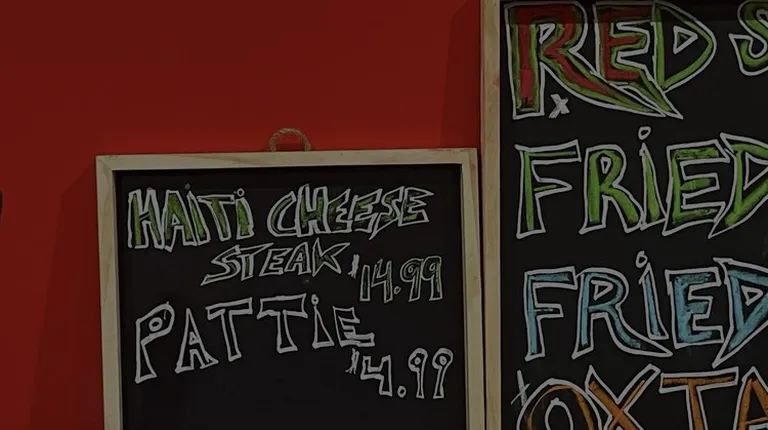 HAiTi CHEESE
STEAK $14.99
PATTiE
$4.99
RED S
FRiED
FRiED
OXTA